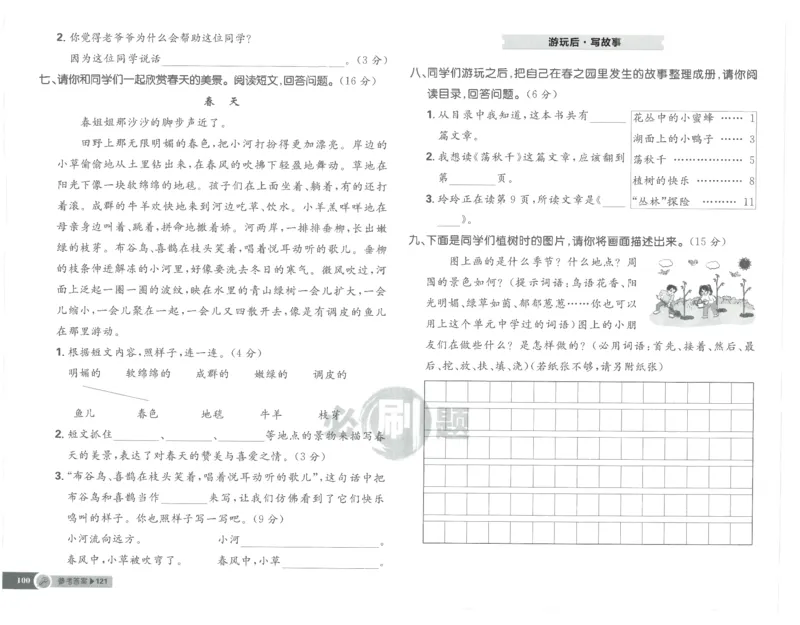 2. 你觉得老爷爷为什么会帮助这位同学?
因为这位同学说话。(3分)
七、请你和同学们一起欣赏春天的美景。阅读短文,回答问题。(16分)
春 天
春姐姐那沙沙的脚步声近了。
田野上那无限明媚的春色,把小河打扮得更加漂亮。岸边的
小草偷偷地从土里钻出来,在春风的吹拂下轻盈地舞动。草地在
阳光下像一块软绵绵的地毯。孩子们在上面坐着、躺着,有的还打
着滚。成群的牛羊欢快地来到河边吃草、饮水。小羊羔咩咩地在
母亲身边叫着、跳着,拼命地撒着娇。河两岸,一排排垂柳,长出嫩
绿的枝芽。布谷鸟、喜鹊在枝头笑着,唱着悦耳动听的歌儿。垂柳
的枝条伸进解冻的小河里,好像要洗去冬日的寒气。微风吹过,河
面上泛起一圈一圈的波纹,映在水里的青山绿树一会儿扩大,一会
儿缩小,一会儿聚在一起,一会儿又四散开去,像是有调皮的鱼儿
在那里游动。
1. 根据短文内容,照样子,连一连。(4分)
明媚的 软绵绵的 成群的 嫩绿的 调皮的
鱼儿 春色 地毯 牛羊 枝芽
2. 短文抓住、、等地点的景物来描写春
天的美景,表达了对春天的赞美与喜爱之情。(3分)
3. “布谷鸟、喜鹊在枝头笑着,唱着悦耳动听的歌儿”,这句话中把
布谷鸟和喜鹊当作来写,让我们仿佛看到了它们快乐
鸣叫的样子。你也照样子写一写吧。(9分)
小河流向远方。 小河。
春风中,小草被吹弯了。 春风中,小草。
100 参考答案▶121
游玩后·写故事
八、同学们游玩之后,把自己在春之园里发生的故事整理成册,请你阅
读目录,回答问题。(6分)
1. 从目录中我知道,这本书共有
篇文章。
2. 我想读《荡秋千》这篇文章,应该翻到
第页。
3. 玲玲正在读第9页,所读文章是《
》。
花丛中的小蜜蜂 …… 1
湖面上的小鸭子 …… 3
荡秋千 ……………… 5
植树的快乐 ………… 8
“丛林”探险 ……… 11
九、下面是同学们植树时的图片,请你将画面描述出来。(15分)
图上画的是什么季节? 什么地点? 周
围的景色如何? (提示词语:鸟语花香、阳
光明媚、绿草如茵、郁郁葱葱……你也可以
用上这个单元中学过的词语)图上的小朋
友们在做些什么? 是怎样做的? (必用词语:首先、接着、然后、最
后、挖、放、扶、填、浇)(若纸张不够,请另附纸张)
必刷题